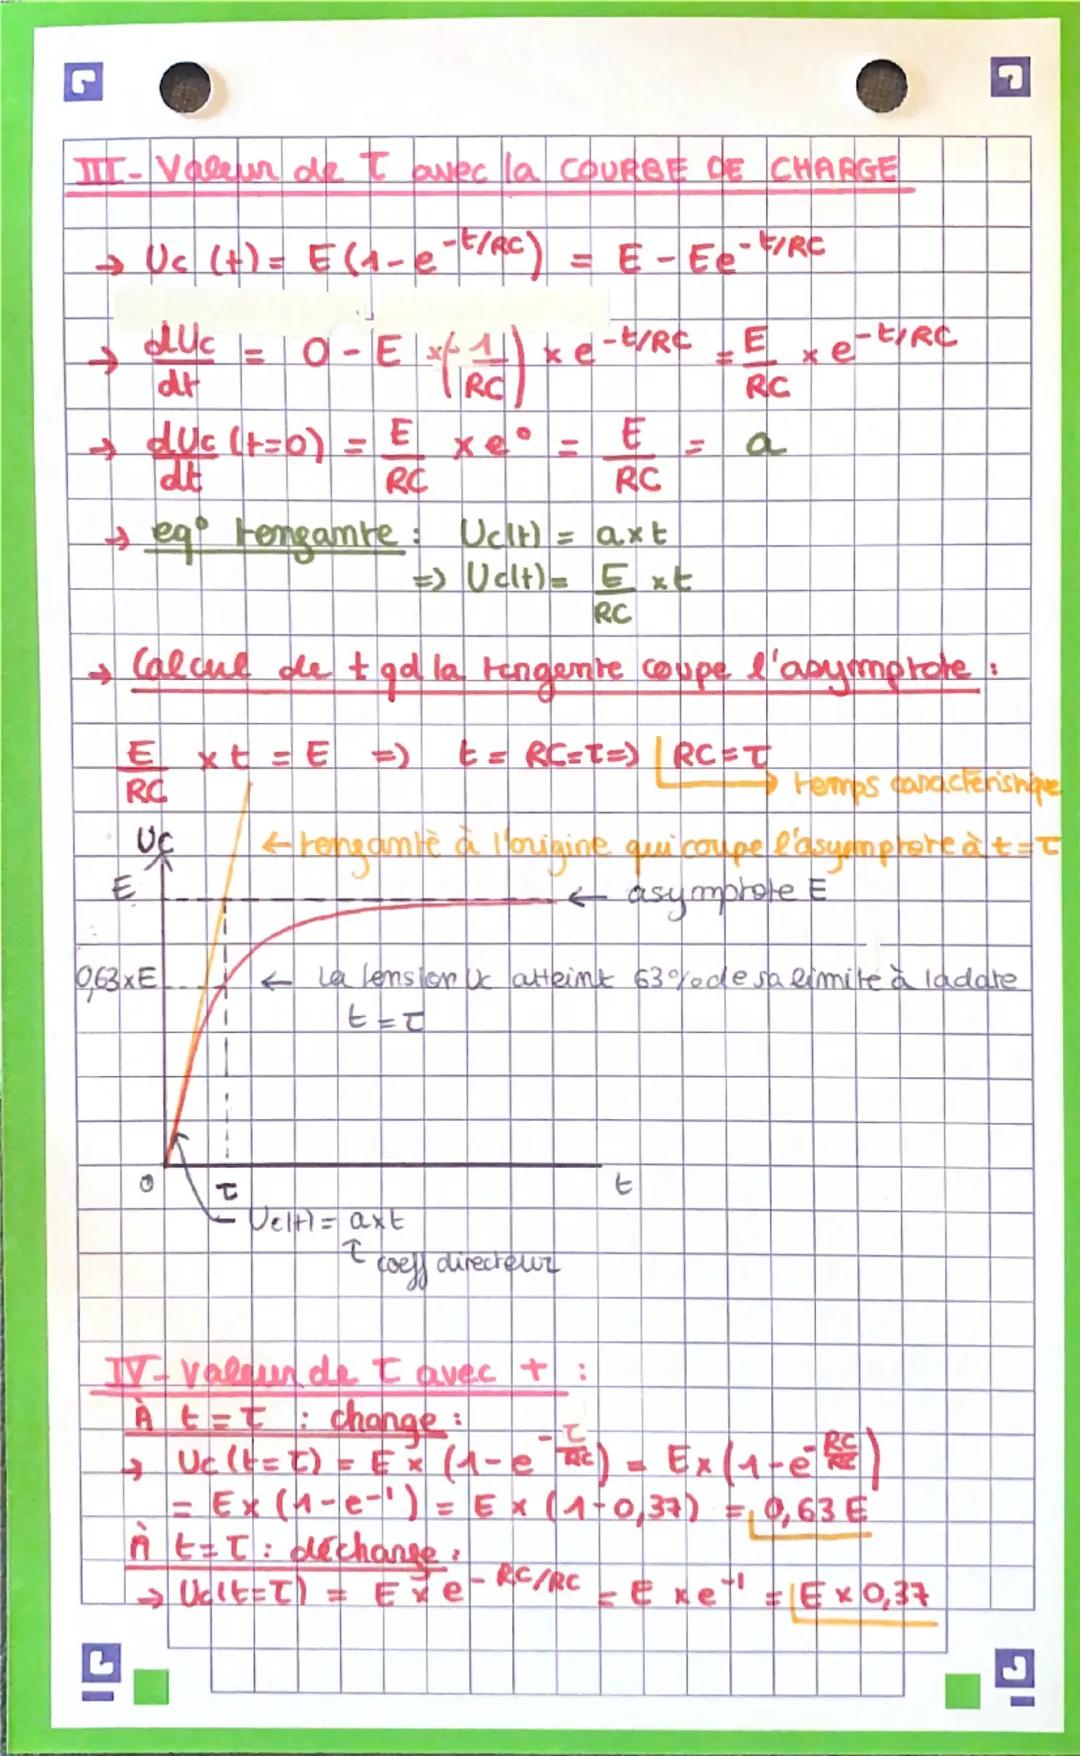 III - Valeur de τ avec la COURBE DE CHARGE
→ Uc (t) = E (1-e^-t/RC) = E - Ee^-t/RC
→ dUc/dt = 0 - E × (-1/RC) × e^-t/RC = E/RC × e^-t/RC
→ dUc/dt (t=0) = E/RC × e° = E/RC = a
→ eq° tangante : Uc(t) = a×t
=> Uc(t) = E/RC × t
→ Calcul de t qd la tangente coupe l'asymptote :
E/RC × t = E => t = RC=τ => RC = τ
→ temps caractéristique
Uc
← tangante à l'origine qui coupe l'asymptote à t=τ
E
← asymptote E
0,63×E
← La tension Uc atteint 63% de sa limite à la date
t = τ
0 τ t
Uc(t) = a×t
↑ coeff directeur
IV - Valeur de τ avec t :
À t = τ : charge :
→ Uc (t=τ) = E × (1-e^-τ/RC) = E × (1-e^-RC/RC)
= E × (1-e^-1) = E × (1-0,37) = 0,63 E
À t=τ : décharge :
→ Uc(t=τ) = E × e^-RC/RC = E × e^-1 = E × 0,37